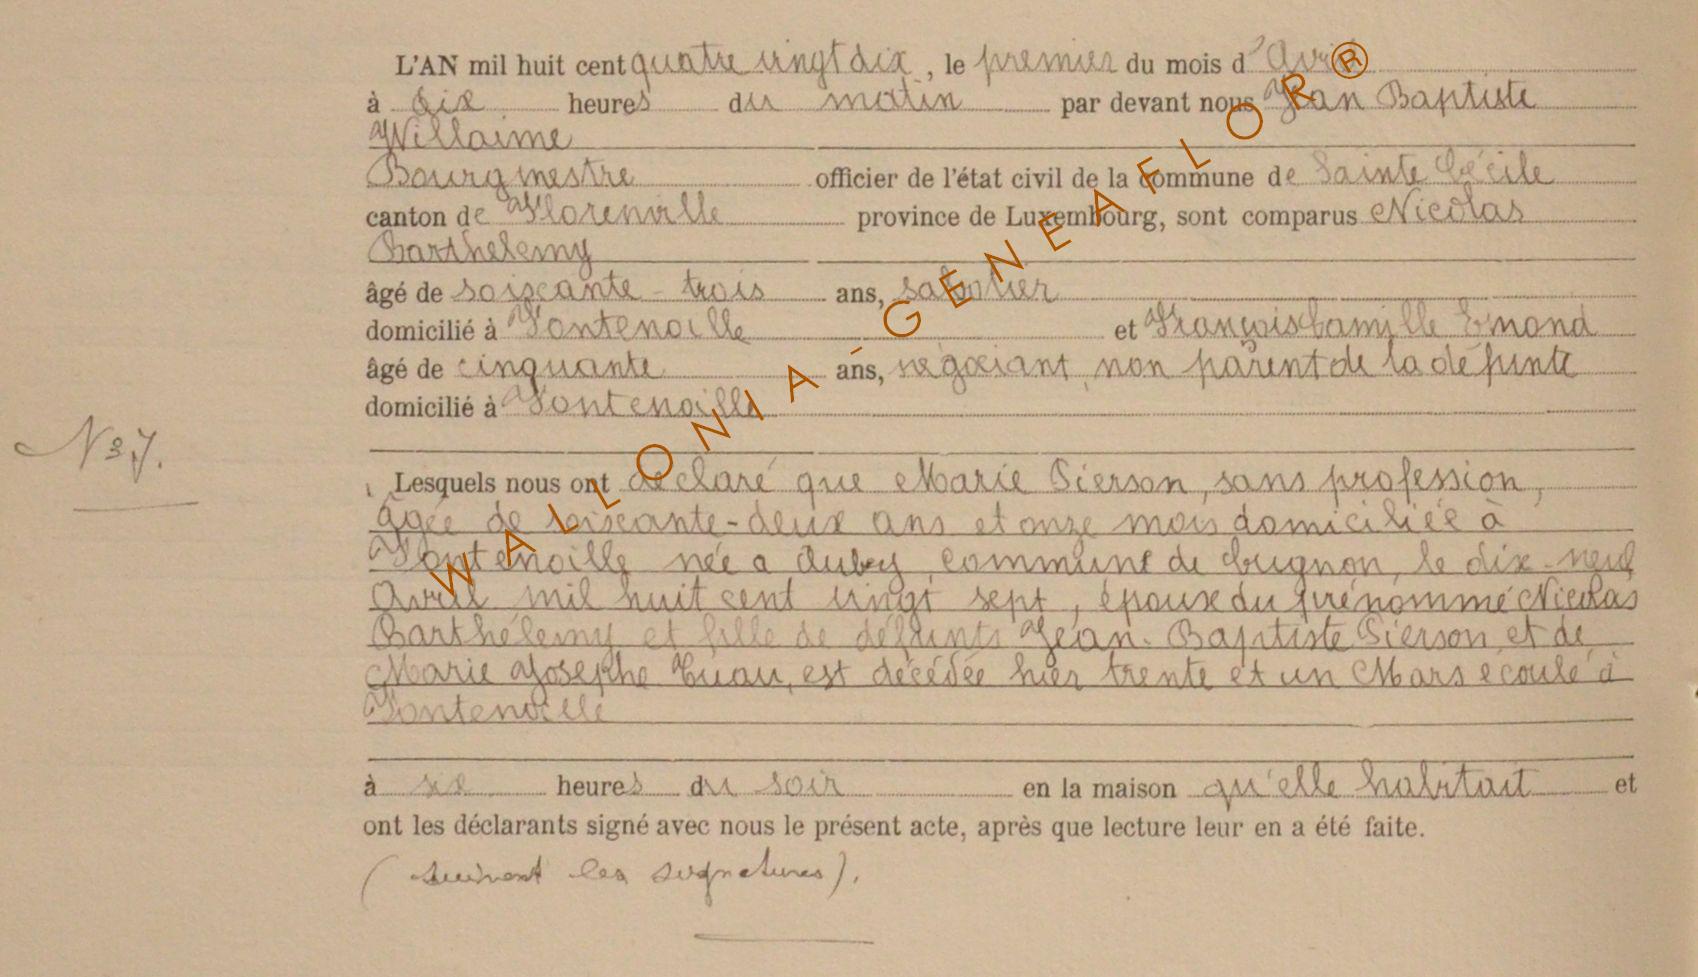 L'AN mil huit cent quatre vingt dix, le premier du mois d'Avril
à dix heures du matin par devant nous Jean Baptiste
Willaime
Bourgmestre officier de l'état civil de la commune de Sainte Cécile
canton de Florenville province de Luxembourg, sont comparus Nicolas
Barthélemy
âgé de soixante-trois ans, sabotier
domicilié à Fontenoille et François Camille Emond
âgé de cinquante ans, négociant, non parent de la défunte
domicilié à Fontenoille
N° 7.
Lesquels nous ont déclaré que Marie Pierson, sans profession,
âgée de soixante-deux ans et onze mois domiciliée à
Fontenoille née a Auby, commune de Cugnon, le dix-neuf
Avril mil huit cent vingt sept, épouse du prénommé Nicolas
Barthélemy et fille de défunts Jean-Baptiste Pierson et de
Marie Josephe, est décédée hier trente et un Mars écoulé à
Fontenoille
à six heures du soir en la maison qu'elle habitait et
ont les déclarants signé avec nous le présent acte, après que lecture leur en a été faite.
(suivent les signatures).
WALLONIA - GENEAFLOR®